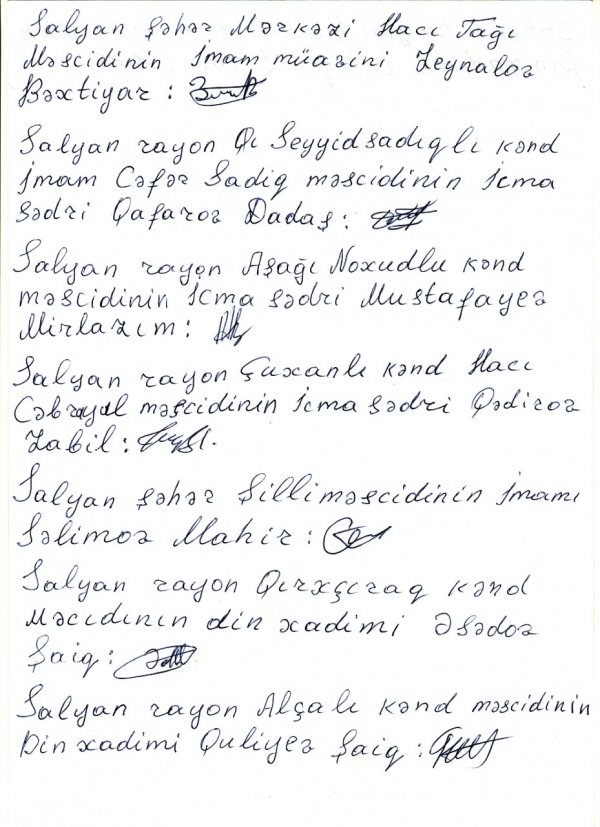 Salyan şəhər Mərkəzi Hacı Tağı
Məscidinin İmam müazini Zeynalov
Bəxtiyar :
Salyan rayon Qı Seyyidsadıqlı kənd
İmam Cəfər Sadiq məscidinin İcma
Sədri Qafarov Dadaş :
Salyan rayon Aşağı Noxudlu kənd
məscidinin İcma sədri Mustafayev
Mirlazım :
Salyan rayon Çuxanlı kənd Hacı
Cəbrayıl məscidinin İcma Sədri Qədirov
Zabil :
Salyan şəhər Şilliməscidinin İmamı
Səlimov Mahir :
Salyan rayon Qırxçıraq kənd
Məcıdının din xadimi Əsədov
Şaiq :
Salyan rayon Alçalı kənd məscidinin
Din xadimi Quliyev Şaiq :